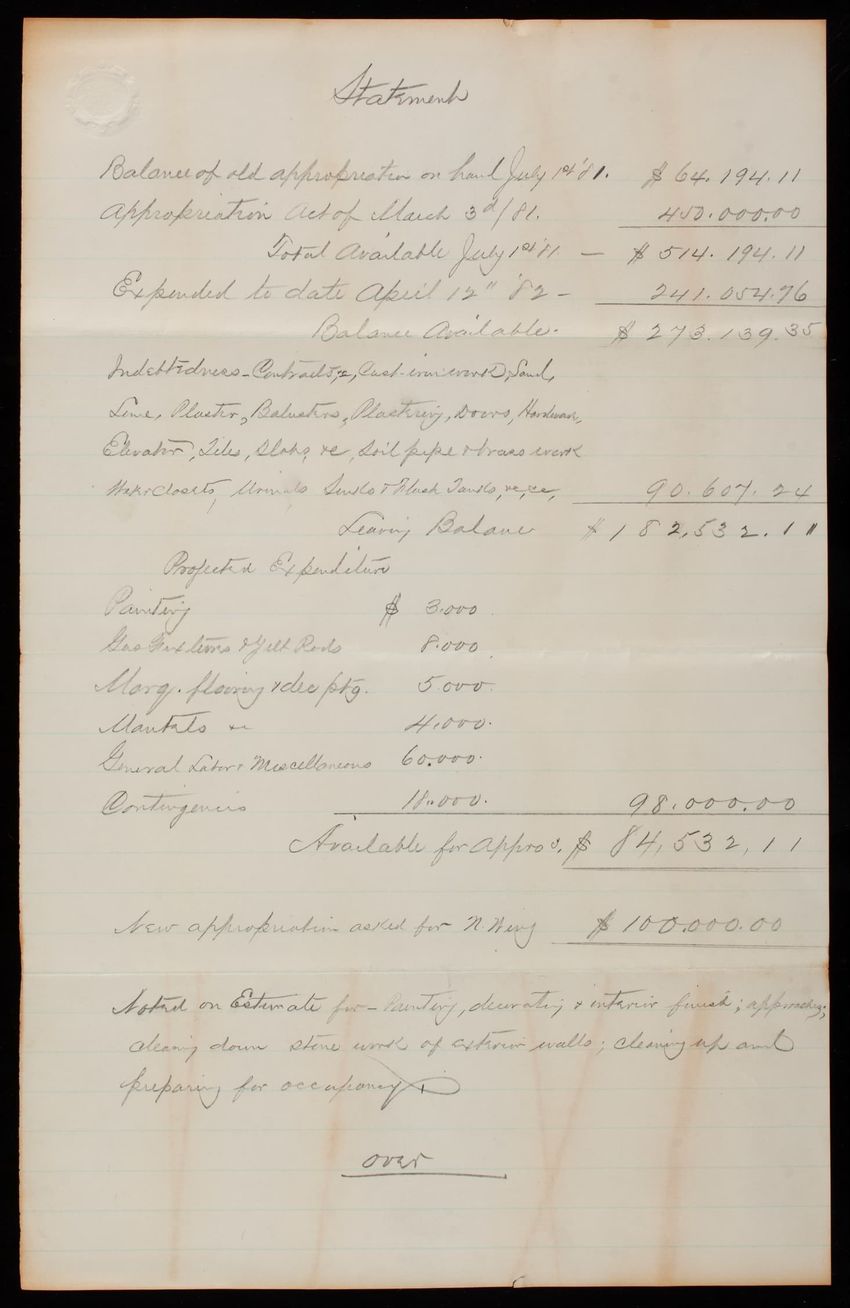 Statement
Balance of old appropriation on hand July 1st '81. $ 64.194.11
Appropriation Act of March 3d/81. 450.000.00
Total Available July 1st '81 — $ 514.194.11
Expended to date April 12" '82 — 241.054.76
Balance Available. $ 273.139.35
Indebtedness - Contracts, &c, Cast-iron work, Sand,
Lime, Plaster, Balusters, Plastering, Doors, Hardware,
Elevator, Tiles, Slabs, &c, Soil pipe & brass work
Water closets, Urinals Sinks & Flush Tanks, &c, &c, 90.607.24
Leaving Balance $ 182,532.11
Projected Expenditure
Painting $ 3.000.
Gas Fixtures & Rods 8.000.
Marq. flooring & dec ptg. 5.000.
Mantels &c 4.000.
General Labor & Miscellaneous 60.000.
Contingencies 18.000. 98.000.00
Available for Appros. $ 84,532,11
New appropriation asked for N. Wing $ 100.000.00
Noted on Estimate for - Painting, decorating & interior finish; approaches;
cleaning down stone work of exterior walls; cleaning up and
preparing for occupancy.
over